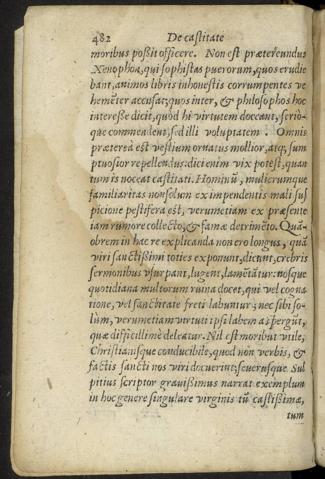 482 De castitate
moribus poßit officere. Non est prætereundus
Xenophon, qui sophistas puerorum, quos erudie
bant, animos libris inhonestis corrumpentes ve
hemẽter accusat; quos inter, & philosophos hoc
intereße dicit, quòd hi virtutem doceant, seriò-
que commendent, sed illi voluptatem. Omnis
præterea est vestium ornatus mollior, atq; sum
ptuosior repellendus: dici enim vix potest, quan
tum is noceat castitati. Hominũ, mulierumque
familiaritas non solum ex impendentis mali sus
picione pestifera est, verumetiam ex præsente
iam rumore collecto, & famæ detrimẽto. Quã-
obrem in hac re explicanda non ero longus, quã
viri sanctißimi toties exponunt, dicunt, crebris
sermonibus vsurpant, lugent, lamẽtãtur: nosque
quotidiana multorum ruina docet, qui vel cogna
tione, vel sanctitate freti labuntur; nec sibi so-
lùm, verumetiam virtuti ipsi labem aspergũt,
quæ difficillimè deleatur. Nil est moribus vtile,
Christianisque conducibile, quod non verbis, &
factis sancti nos viri docuerint; seuerusque Sul
pitius scriptor grauißimus narrat exemplum
in hoc genere singulare virginis tũ castißimæ,
tum